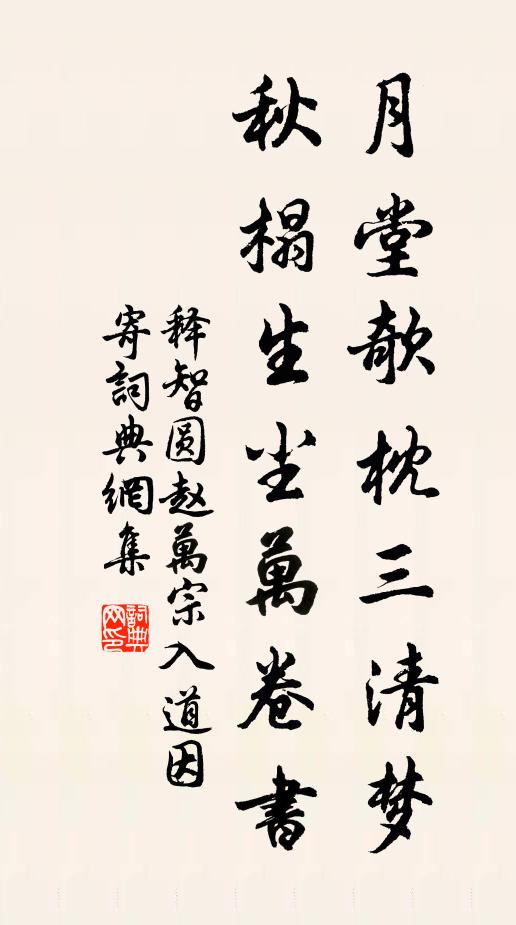 月堂欹枕三清梦
秋榻生尘萬卷書
释智圆赵萬宗入道因
寄詞典網集
詞典
网印